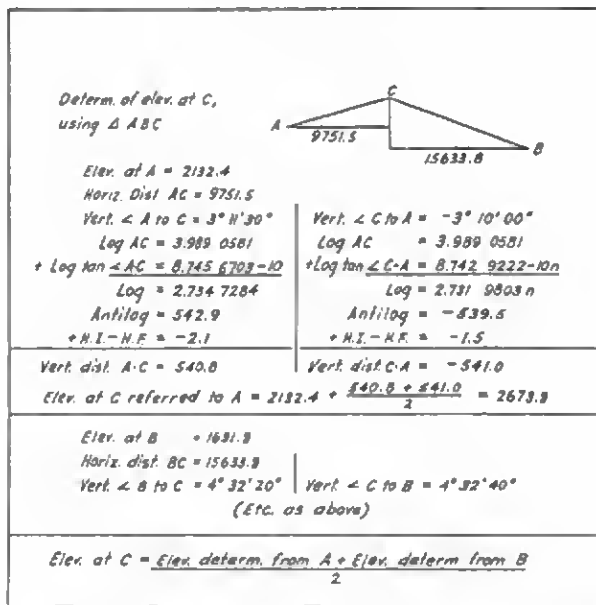 Determ. of elev. at C,
using Δ ABC
C
A
9751.5
15633.8
B
Elev. at A = 2132.4
Horiz. Dist AC = 9751.5
Vert. ∠ A to C = 3° 11' 30"
Log AC = 3.989 0581
+ Log tan ∠AC = 8.745 6703-10
Log = 2.734 7284
Antilog = 542.9
+ H.I.- H.F. = -2.1
Vert. dist. A-C = 540.8
Vert. ∠ C to A = -3° 10' 00"
Log AC = 3.989 0581
+Log tan ∠C-A = 8.742 9222-10n
Log = 2.731 9803 n
Antilog = -539.5
+ H.I.- H.F. = -1.5
Vert. dist. C-A = -541.0
Elev. at C referred to A = 2132.4 + 540.8 + 541.0 / 2 = 2673.3
Elev. at B = 1631.9
Horiz. dist. BC = 15633.8
Vert. ∠ B to C = 4° 32' 20"
Vert. ∠ C to B = 4° 32' 40"
(Etc. as above)
Elev. at C = Elev. determ. from A + Elev. determ from B / 2